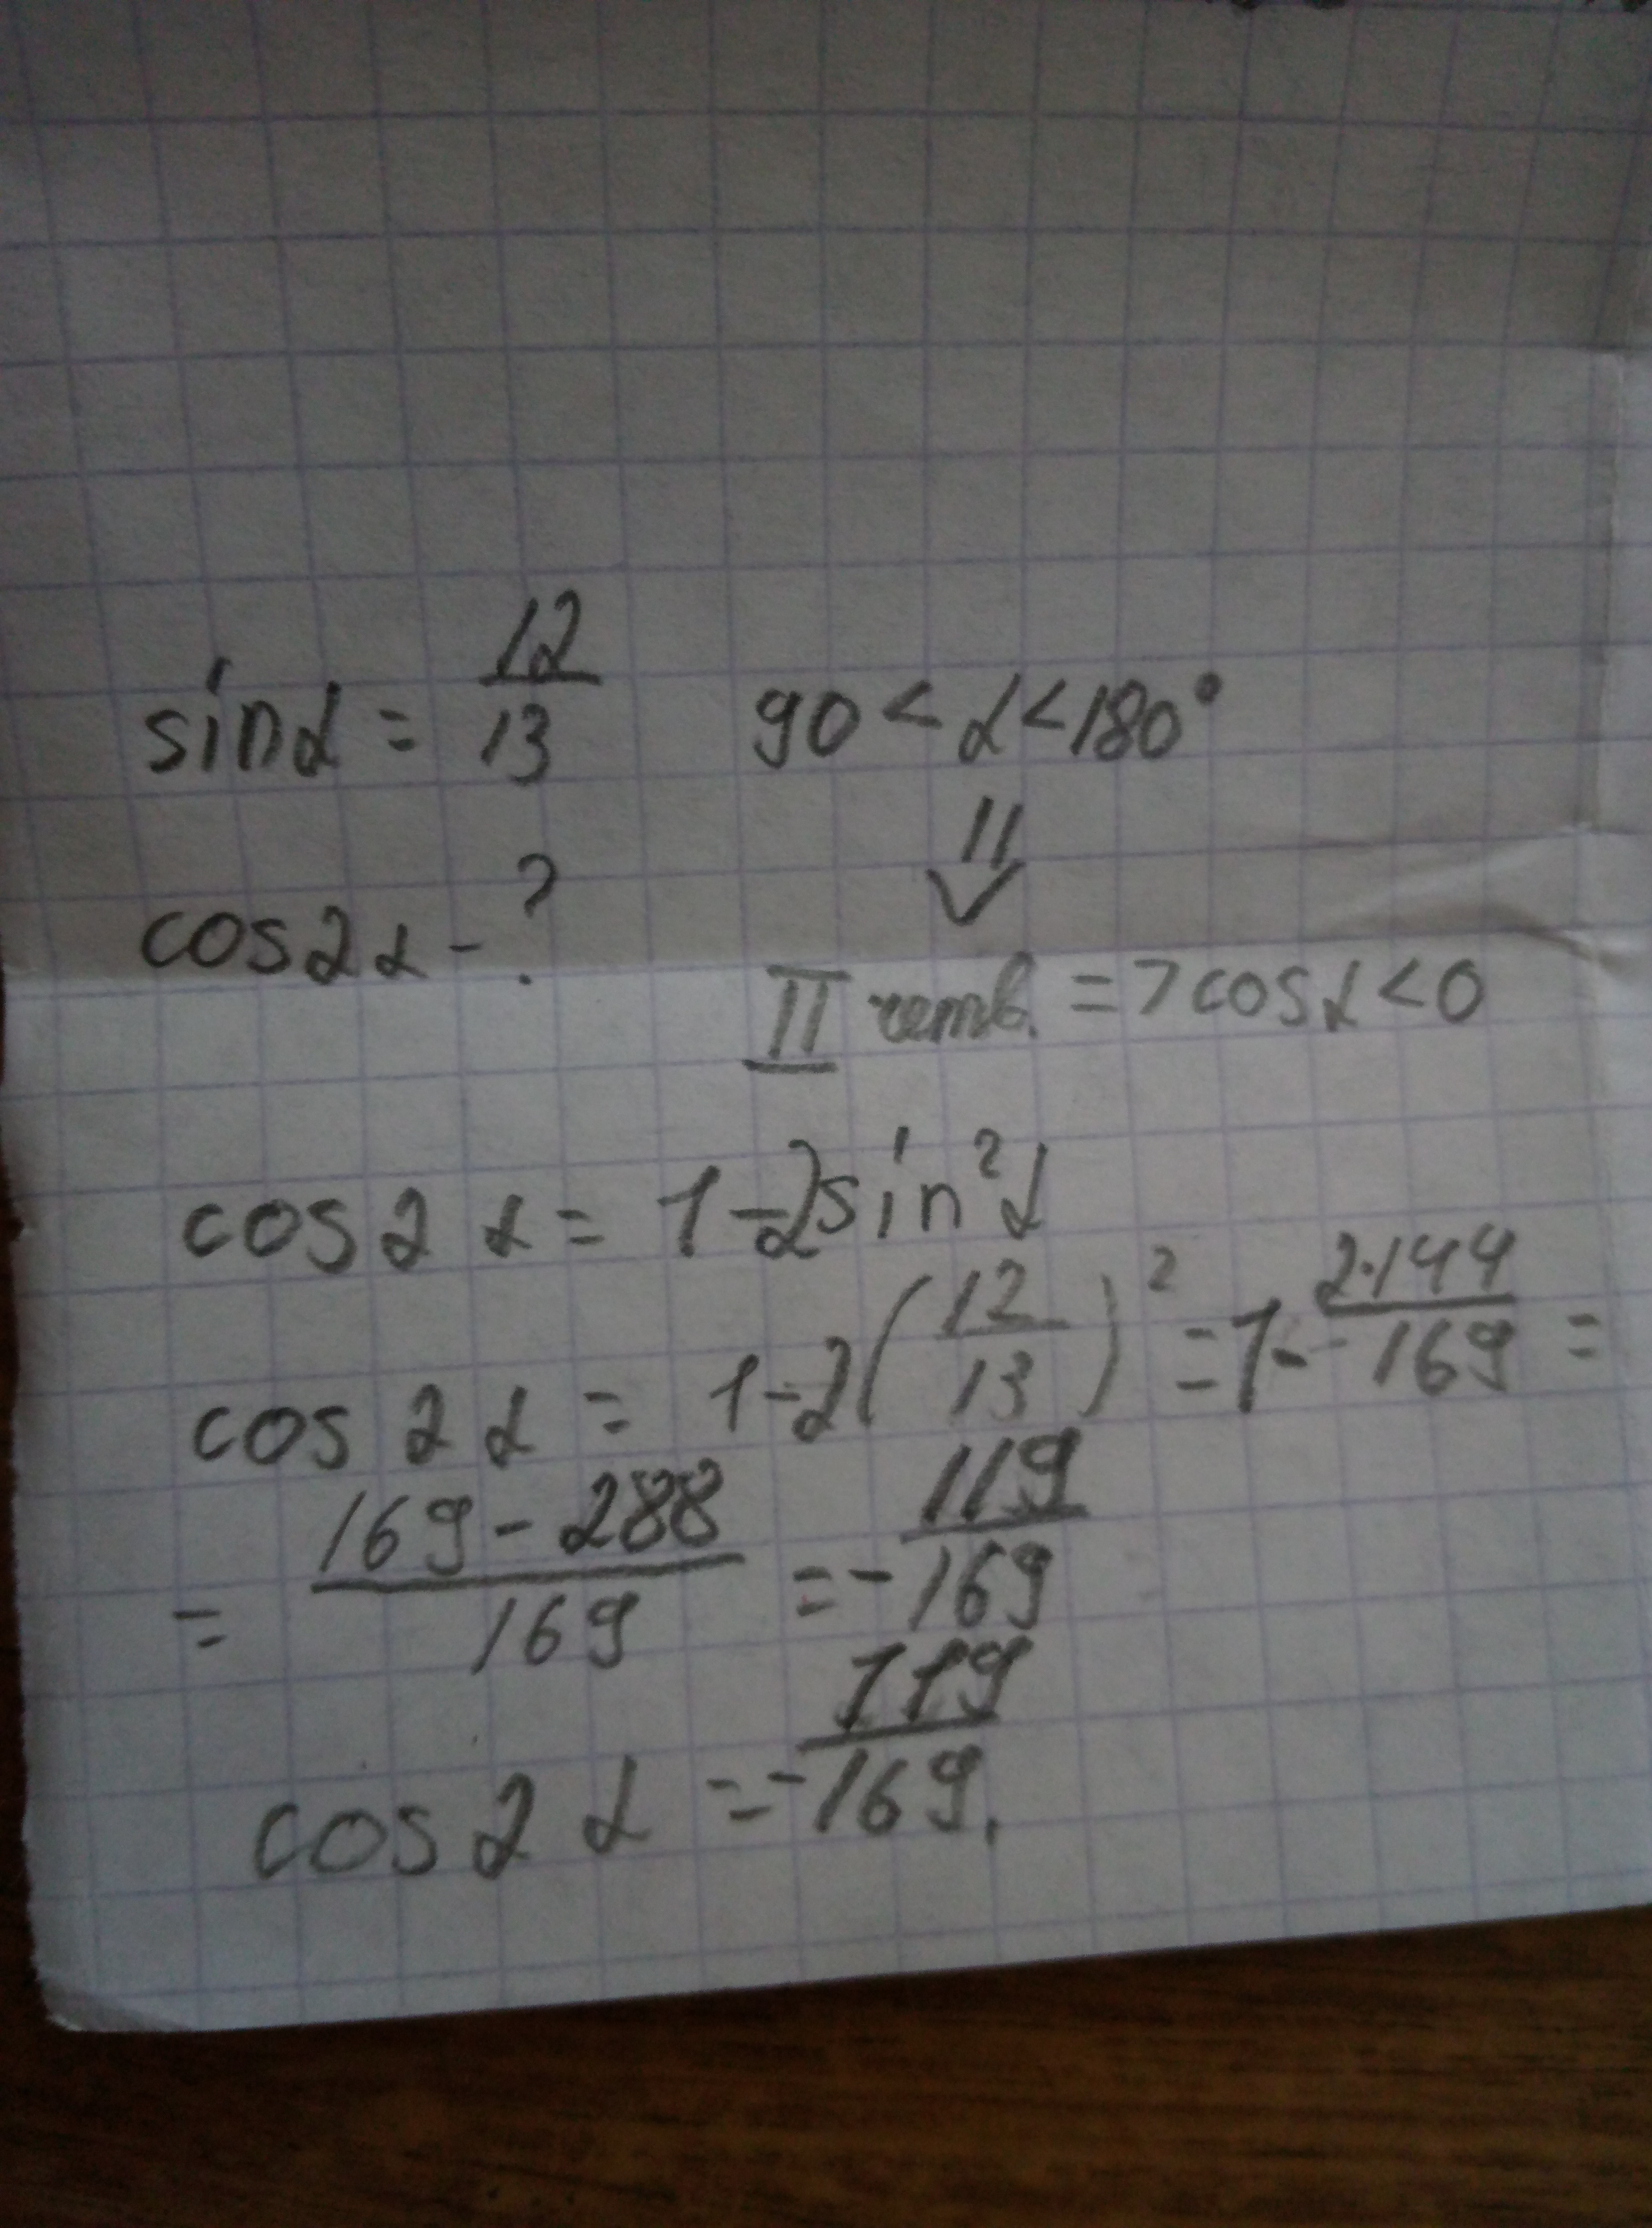 sinα = 12/13   90 < α < 180°
⇓
cos2α - ?
II четв. => cosα < 0
cos2α = 1-2sin²α
cos2α = 1-2(12/13)² = 1 - 2·144/169 =
= 169-288/169 = - 119/169
cos2α = - 119/169.